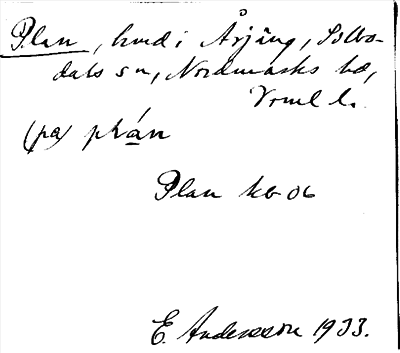 Plan, hmd i Årjäng, Silbo-
dals sn, Nordmarks hd,
Vrml l.
(pa) plán
Plan kb 06
E. Andersson 1933.